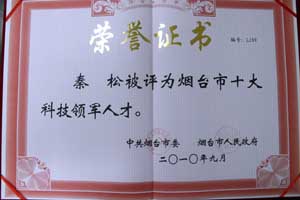 荣誉证书
秦 松被评为烟台市十大
科技领军人才。
中共烟台市委 烟台市人民政府
二〇一〇年九月